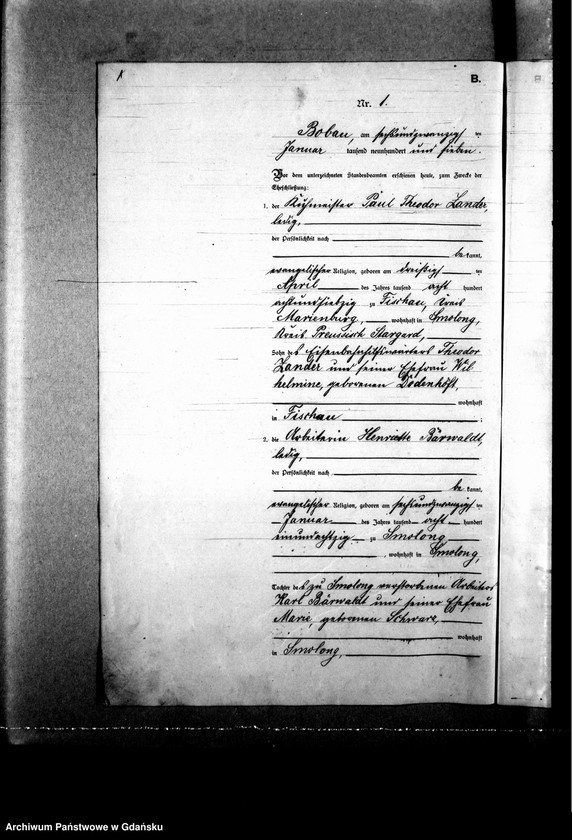 B.
Nr. 1.
Bobau, am sechsundzwanzig ten
Januar tausend neunhundert und sieben.
Vor dem unterzeichneten Standesbeamten erschienen heute, zum Zwecke der
Eheschließung:
1. der Kuhmeister Paul Theodor Lander,
ledig,
der Persönlichkeit nach
be kannt,
evangelischer Religion, geboren am dreißig ten
April des Jahres tausend acht hundert
achtundsiebzig zu Fischau, Kreis
Marienburg, wohnhaft in Smolong,
Kreis Preussisch Stargard,
Sohn des Eisenbahnhilfswärters Theodor
Lander und seiner Ehefrau Wil
helmine, geborenen Dodenhöft,
wohnhaft
in Fischau ;
2. die Arbeiterin Henriette Bärwaldt,
ledig,
der Persönlichkeit nach
be kannt,
evangelischer Religion, geboren am sechsundzwanzig ten
Januar des Jahres tausend acht hundert
einundachtzig zu Smolong
, wohnhaft in Smolong,
Tochter des zu Smolong verstorbenen Arbeiters
Karl Bärwaldt und seiner Ehefrau
Marie, geborenen Schwarz,
wohnhaft
in Smolong,
Archiwum Państwowe w Gdańsku